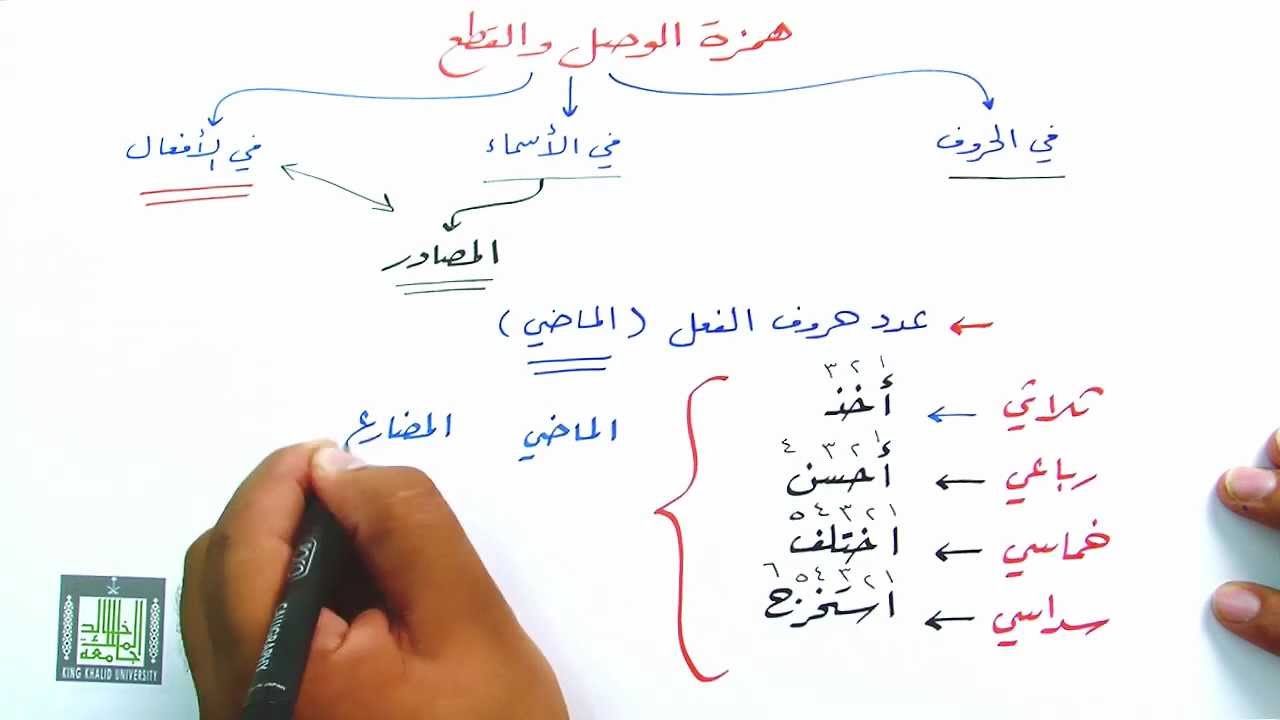 همزة الوصل والقطع
في الحروف في الأسماء في الأفعال
المصادر
عدد حروف الفعل (الماضي)
١ ٢ ٣
ثلاثي أخذ
الماضي المضارع
١ ٢ ٣ ٤
رباعي أحسن
١ ٢ ٣ ٤ ٥
خماسي اختلف
١ ٢ ٣ ٤ ٥ ٦
سداسي استخرج
جامعة الملك خالد
KING KHALID UNIVERSITY